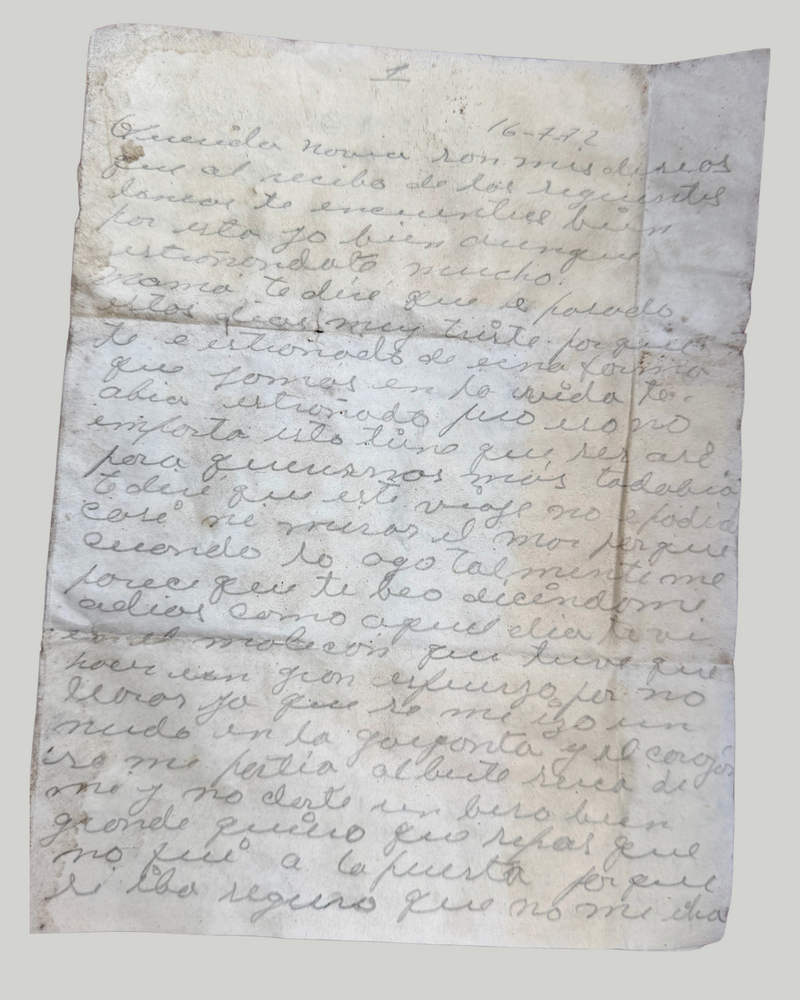 1
16-7-72
Querida novia son mis deseos
que al recibo de las siguientes
lineas te encuentres bien
por esta yo bien aunque
estrañandote mucho.
mama te diré que e pasado
estos dias muy triste porque
te e estrañado de una forma
que jamas en la vida te
abia estrañado pero eso no
importa esto tiene que ser asi
para querernos mas todabia
te diré que este viaje no e podido
casi ni mirar el mar porque
cuando lo ago talmente me
parece que te beo diciendome
adios como aquel dia te vi
en el malecon que tuve que
hacer un gran esfuerzo por no
llorar ya que se me izo un
nudo en la garganta y el corazon
se me partia al berte serca de
mi y no darte un beso bien
grande quiero que sepas que
no fui a la puerta porque
si iba seguro que no me iba